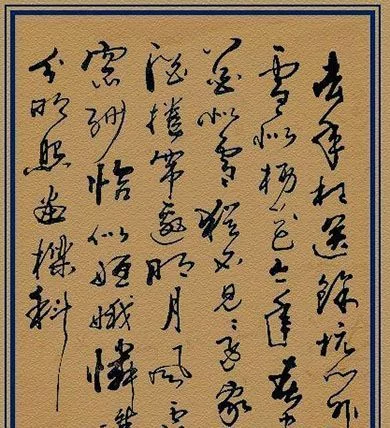 去年相送餘杭門外
雪似楊花今年春
花似雪猶不見還家
酒捲簾邀明月風露
窗紗恰似姮娥憐
分明照畫樑斜